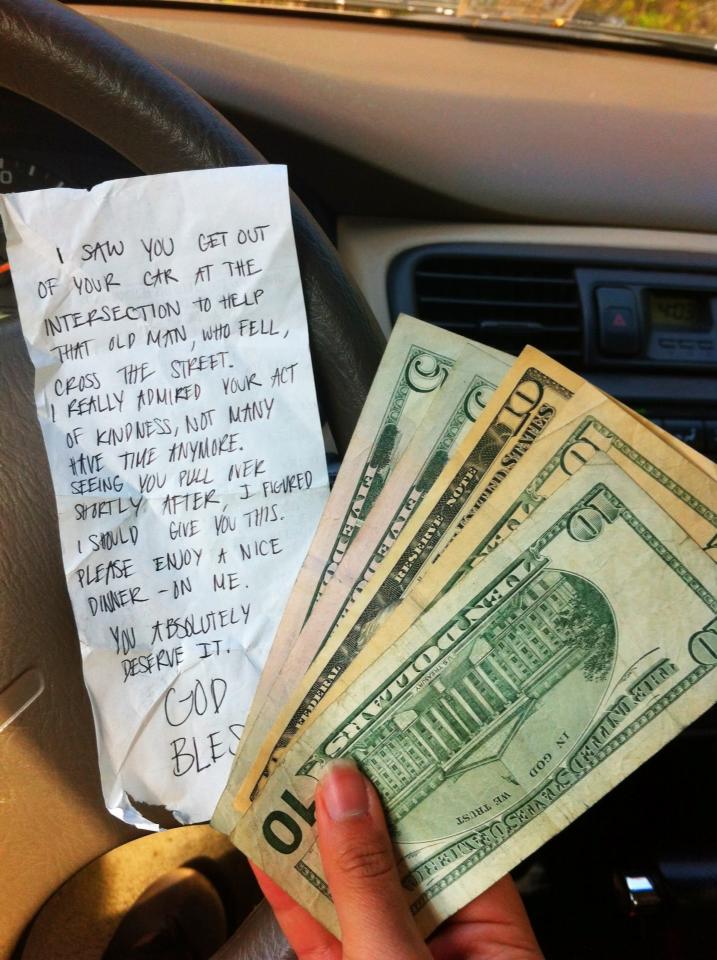 I SAW YOU GET OUT
OF YOUR CAR AT THE
INTERSECTION TO HELP
THAT OLD MAN, WHO FELL,
CROSS THE STREET.
I REALLY ADMIRED YOUR ACT
OF KINDNESS, NOT MANY
HAVE TIME ANYMORE.
SEEING YOU PULL OVER
SHORTLY AFTER, I FIGURED
I SHOULD GIVE YOU THIS.
PLEASE ENJOY A NICE
DINNER - ON ME.
YOU ABSOLUTELY
DESERVE IT.
GOD
BLES
5
5
10
FEDERAL RESERVE NOTE
UNITED STATES
10
10
THE UNITED STATES OF AMERICA
IN GOD WE TRUST
U.S. TREASURY
TEN DOLLARS
10
10